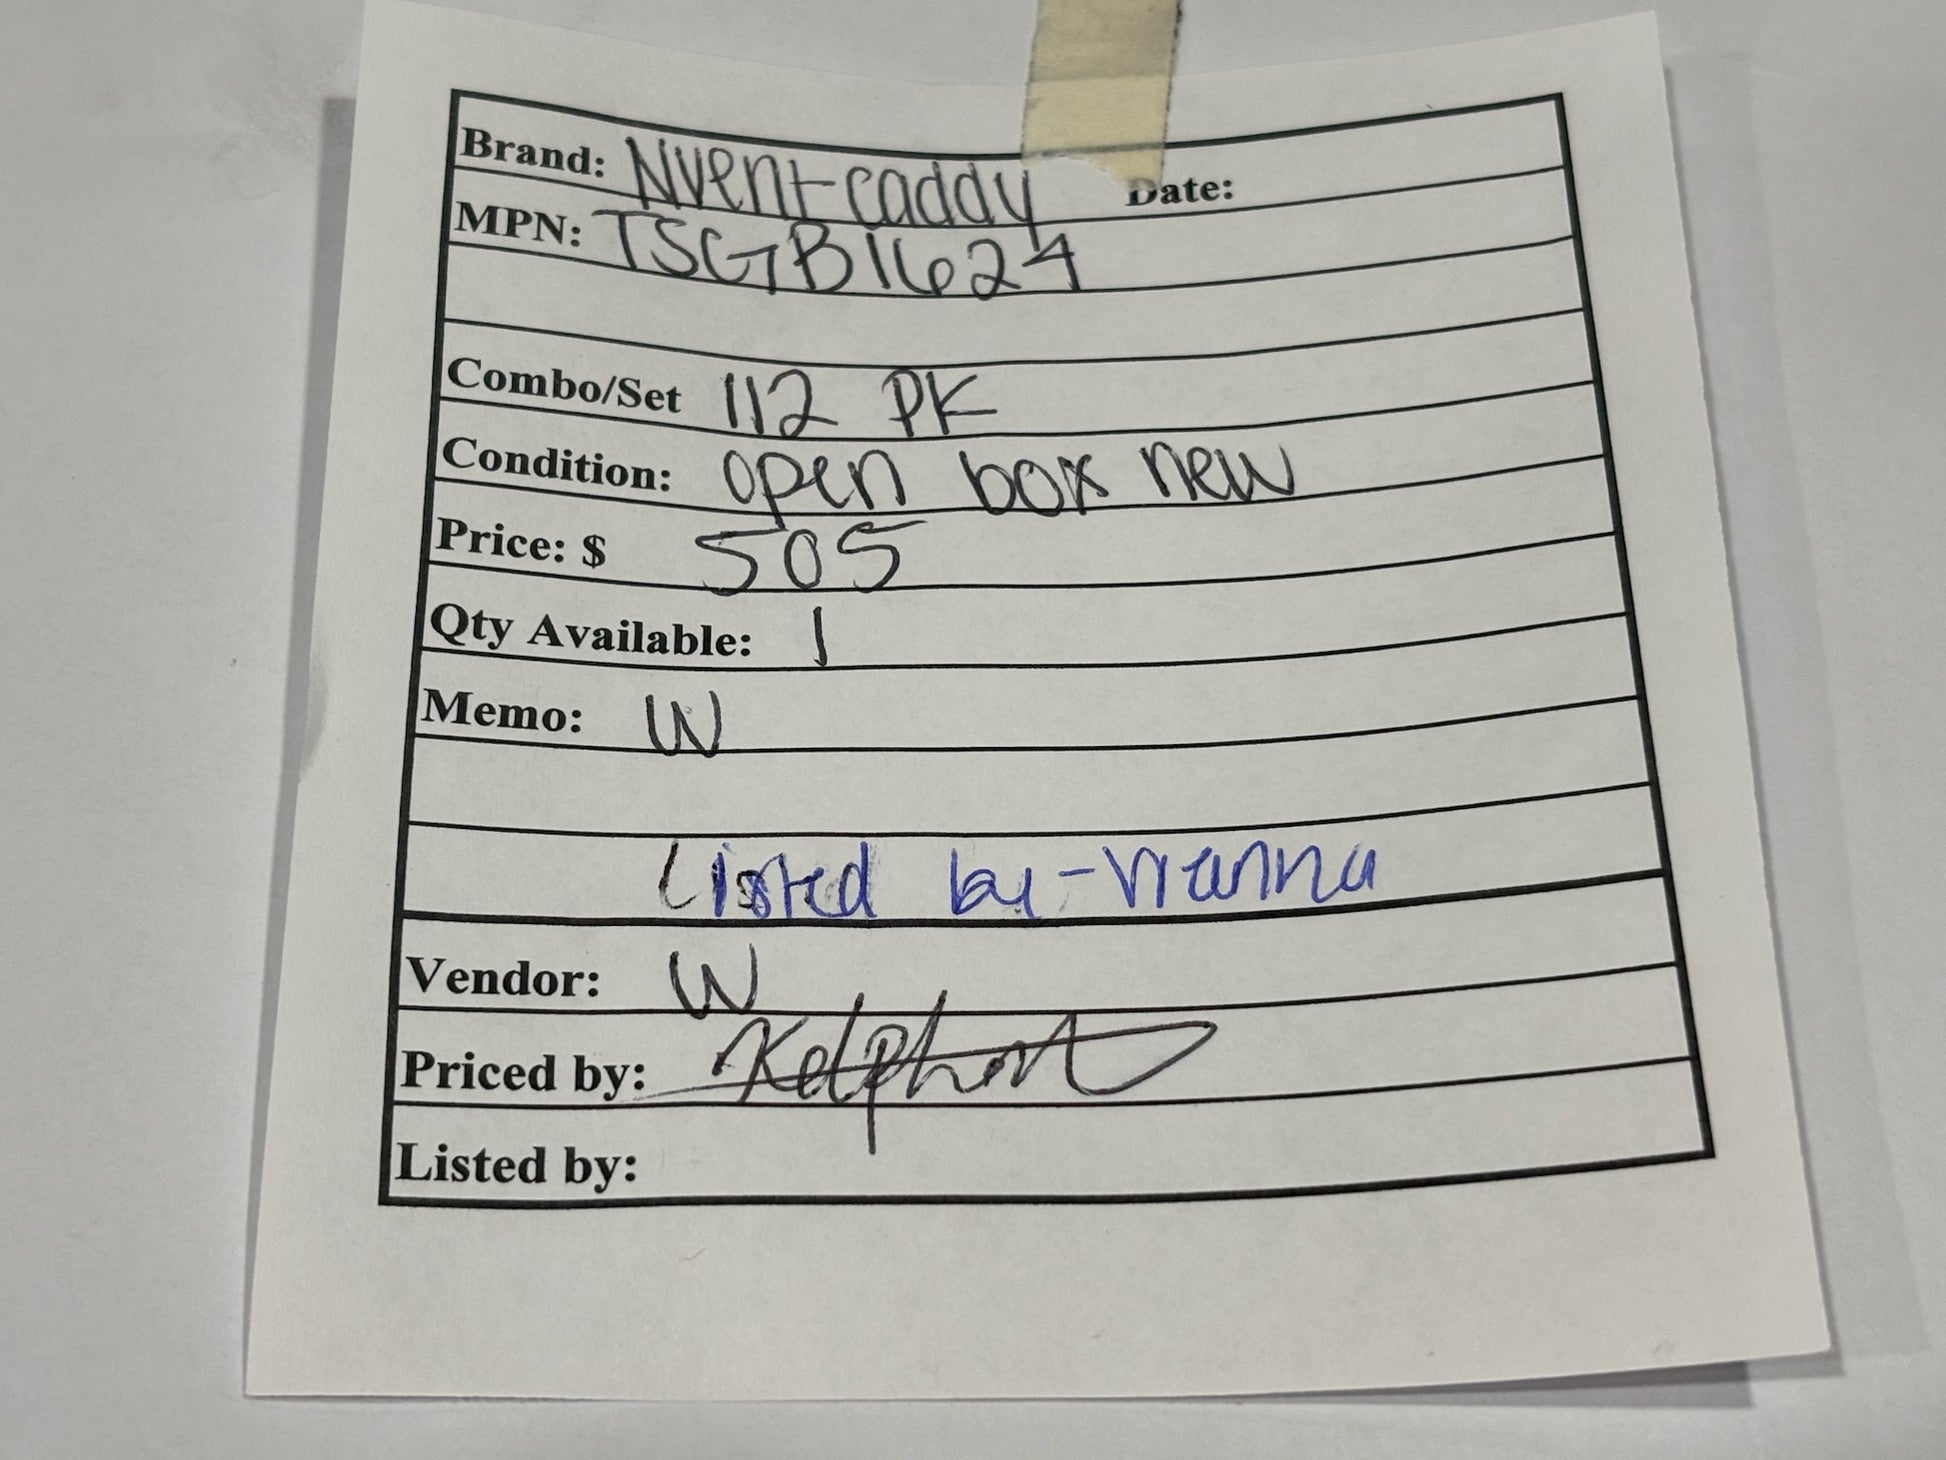 Brand: Nvent caddy Date:
MPN: TSGB1624
Combo/Set 112 PK
Condition: open box new
Price: $ 505
Qty Available: 1
Memo: W
Listed by - Vianna
Vendor: W
Priced by:
Listed by: